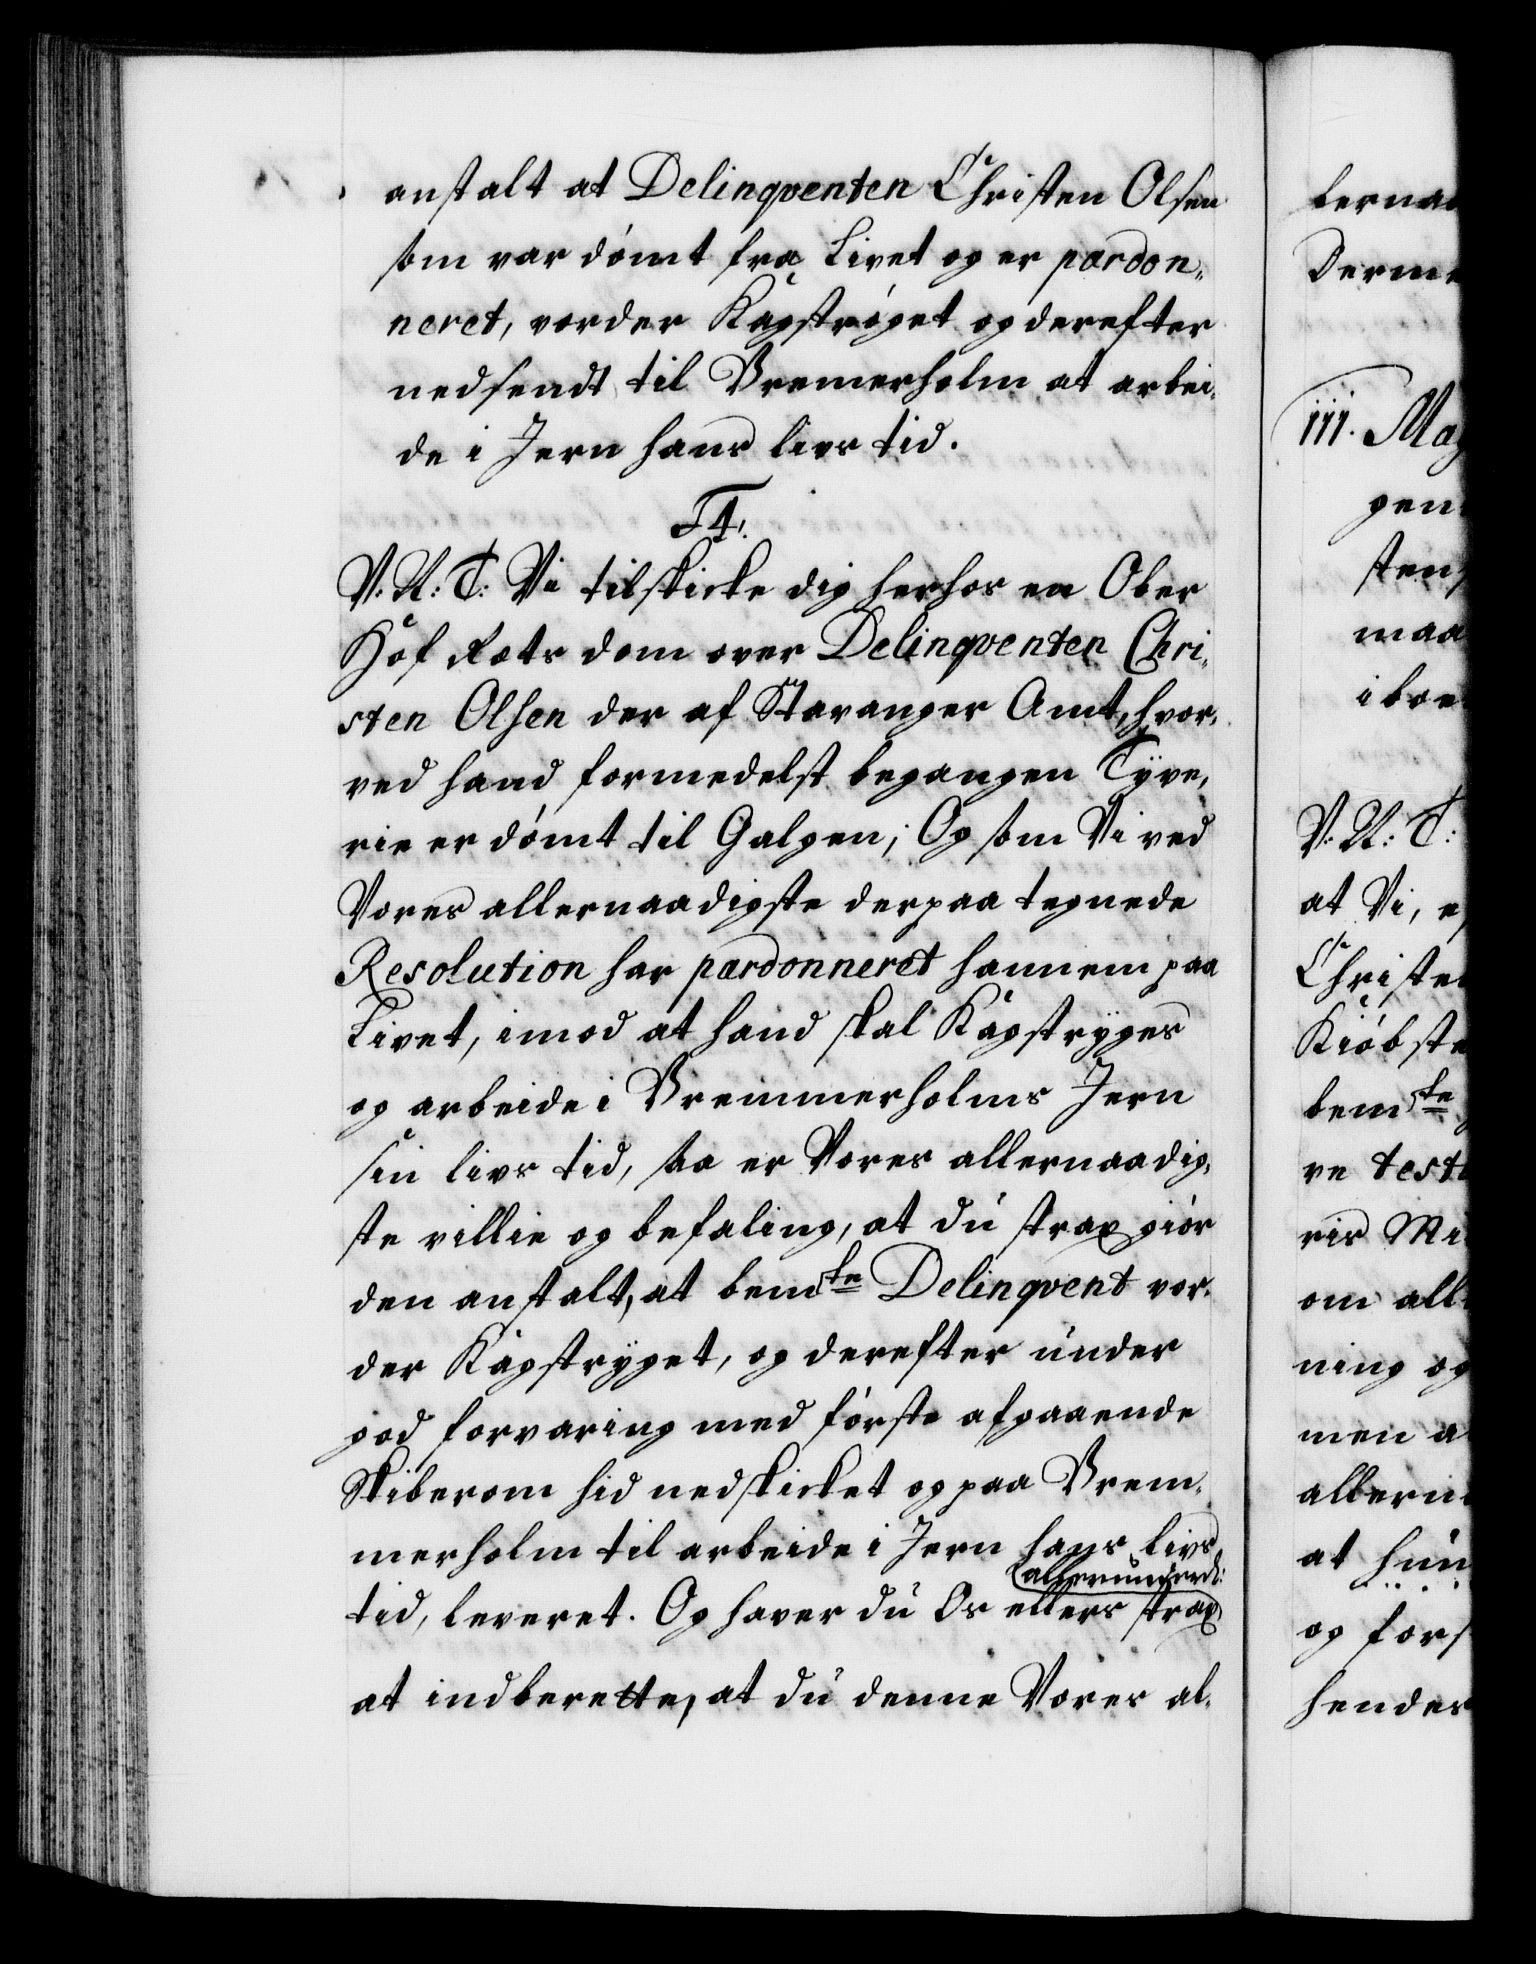 anstalt at Delinqventen Christen Olsen
som var dømt fra Livet og er pardon„
neret, vorder Kagstrøget og derefter
nedsendt til Bremerholm at arbei„
de i Jern hans livs tid.
V. U: T: Vi tilskicke dig herhos en Ober
Hof Rets dom over Delinqventen Chri„
sten Olsen der af Stavanger Amt, hvor„
ved hand formedelst begangen Tyve„
rie er dømt til Galgen; Og som Vi ved
Vores allernaadigste derpaa tegnede
Resolution har pardonneret hannem paa
Livet, imod at hand skal Kagstryges
og arbeide i Bremmerholms Jern
sin livs tid, saa er Vores allernaadig„
ste villie og befaling, at du strax giør
den anstalt, at bemte Delinqvent vor„
der Kagstryget, og derefter under
god forvaring med første afgaaende
Skiberom hid nedskicket og paa Brem„
merholm til arbeide i Jern hans livs
allerunderd:
tid, leveret. Og haver du Os ellers strax
at indberette, at du denne Vores al„
lernaa
Derme
111. Mag
gen
sten
maa
iboe
V: U: T:
at Vi, e
Christe
Kiøbste
bemte
re test
ris Mi
om all
ning og
men a
allerun
at hun
og fors
hendes